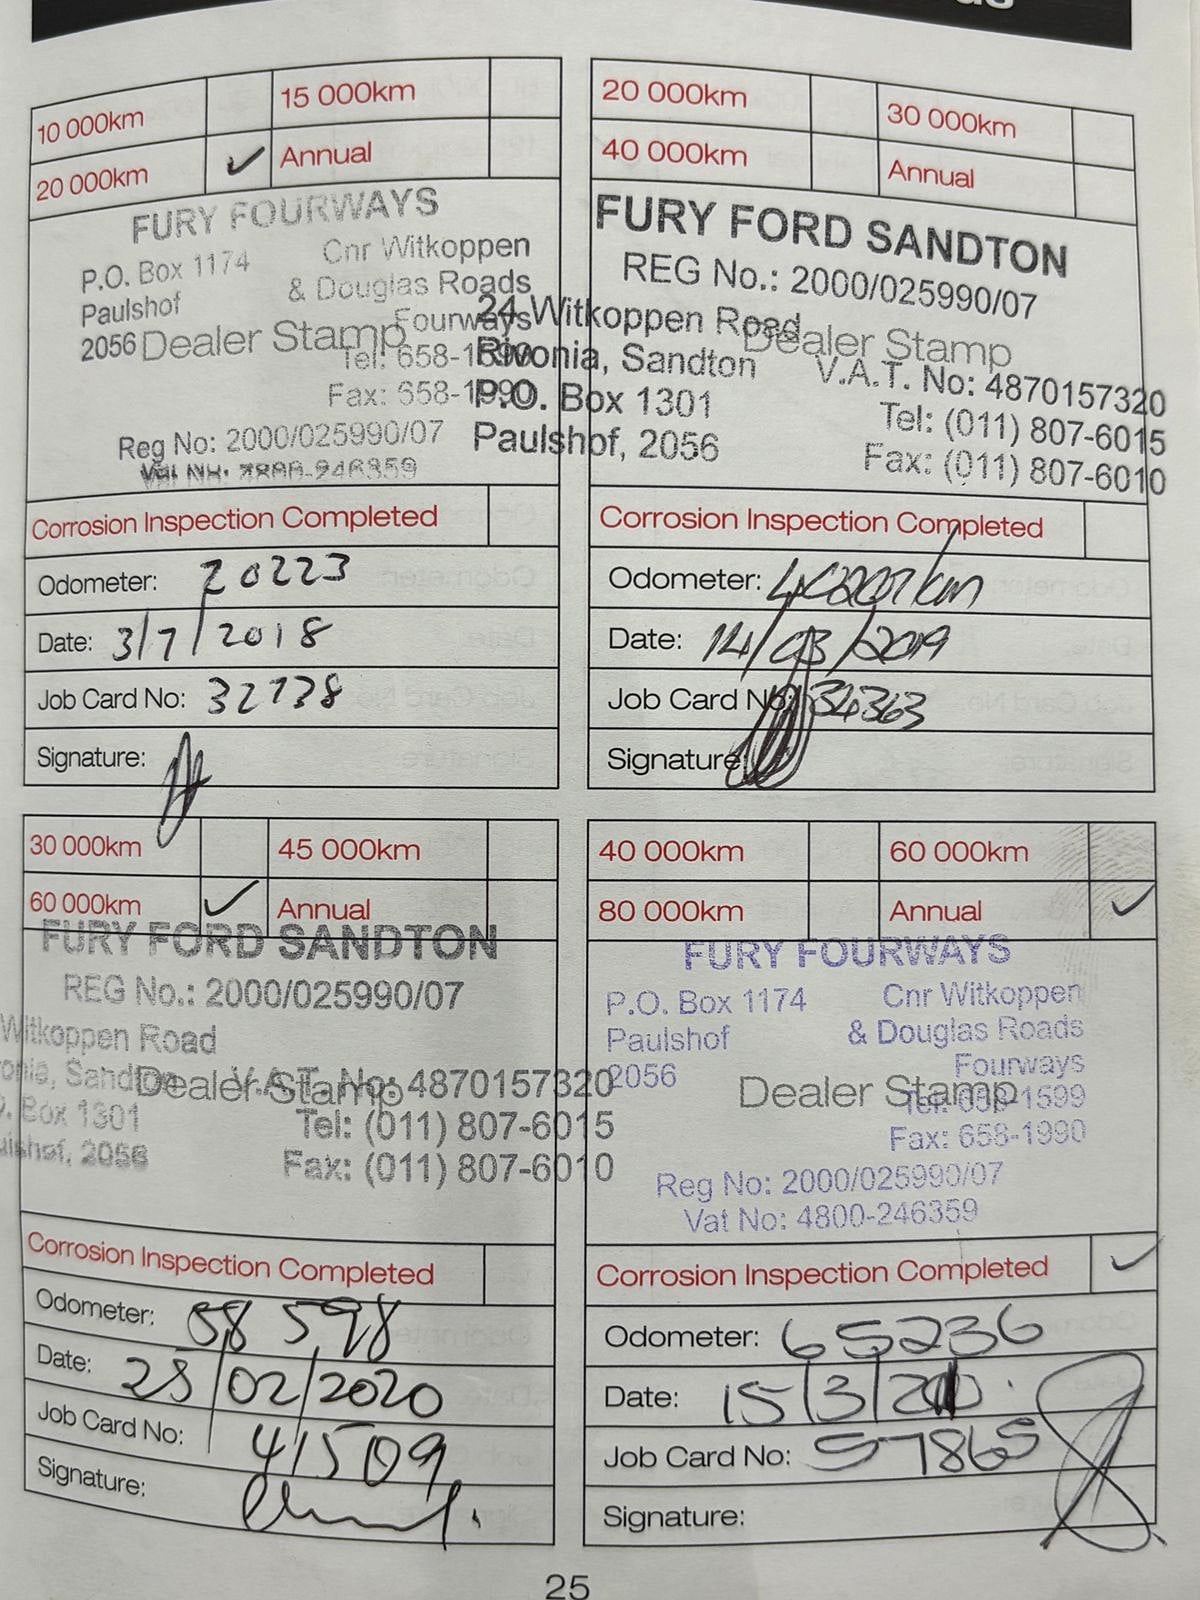 10 000km 15 000km
20 000km ✓ Annual
FURY FOURWAYS
P.O. Box 1174
Paulshof
2056
Cnr Witkoppen
& Douglas Roads
Fourways
Tel: 658-1599
Fax: 658-1990
Dealer Stamp
Reg No: 2000/025990/07
Vat No: 4800-246359
Corrosion Inspection Completed
Odometer: 20223
Date: 3/7/2018
Job Card No: 32738
Signature:
20 000km 30 000km
40 000km Annual
FURY FORD SANDTON
REG No.: 2000/025990/07
24 Witkoppen Road
Rivonia, Sandton
P.O. Box 1301
Paulshof, 2056
Dealer Stamp
V.A.T. No: 4870157320
Tel: (011) 807-6015
Fax: (011) 807-6010
Corrosion Inspection Completed
Odometer: km
Date: 14/03/2019
Job Card No: 34363
Signature:
30 000km 45 000km
60 000km ✓ Annual
FURY FORD SANDTON
REG No.: 2000/025990/07
Witkoppen Road
Sandton
Box 1301
2056
Dealer Stamp
V.A.T. No: 4870157320
Tel: (011) 807-6015
Fax: (011) 807-6010
Corrosion Inspection Completed
Odometer: 58 598
Date: /02/2020
Job Card No: 41509
Signature:
40 000km 60 000km
80 000km Annual ✓
FURY FOURWAYS
P.O. Box 1174
Paulshof
2056
Cnr Witkoppen
& Douglas Roads
Fourways
Tel: 658-1599
Fax: 658-1990
Dealer Stamp
Reg No: 2000/025990/07
Vat No: 4800-246359
Corrosion Inspection Completed ✓
Odometer: 65236
Date: 15/3/
Job Card No: 57865
Signature:
25